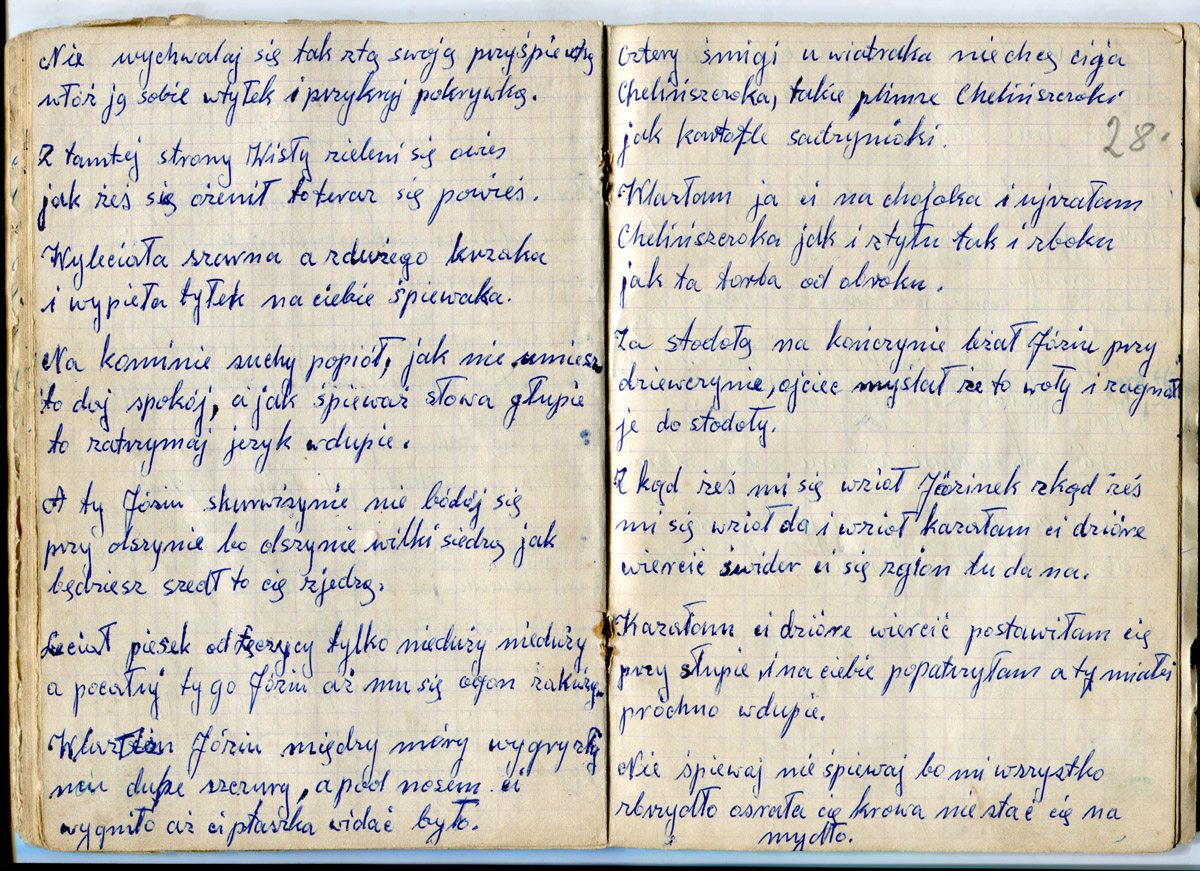 Nie wychwalaj się tak ztą swoją przyśpiewką
włóż ją sobie wtyłek i przykryj pokrywką.
Z tamtej strony Wisły zieleni się owies
jak żeś się ożenił toteraz się powieś.
Wyleciała szarna a zdużego krzaka
i wypieła tyłek na ciebie śpiewaka.
Na kominie suchy popiół, jak nie umiesz
to doj spokój, a jak śpiewasz słowa głupie
to zatrzymaj jezyk wdupie.
A ty Józiu skurwizynie nie bódój się
przy olszynie bo olszynie wilki siedzą jak
będziesz szedł to cię zjedzą.
Leciał piesek od Łęczycy tylko nieduży nieduży
a pocałuj ty go Józiu aż mu się ogon zakurzy.
Józiu między móry wygryzły
mu dupe szczury, a pod nosem ci
wygniło aż ci ptaszka widać było.
cztery śmigi u wiatraka niechcę ci ja
Chelińszczoka, takie plimze Chelińszczoki
jak kartofle sadzynioki.
28.
Wlazłam ja ci na chojoka i ujrzałam
Chelińszczoka jak i ztyłu tak i zboku
jak ta torba od obroku.
Za stodołą na kończynie leżał Józiu przy
dziewczynie, ojciec myślał że to woły i zagnał
je do stodoły.
Z kąd żeś mi się wzioł Józinek zkąd żeś
mi się wzioł da i wzioł kazałam ci dzióre
wiercić świder ci się zgion tu da na.
Kazałam ci dzióre wiercić postawiłam cię
przy słupie, i na ciebie popatrzyłam a ty miałeś
próchno wdupie.
Nie śpiewaj nie śpiewaj bo mi wszystko
zbrzydło osrała cię krowa nie stać cię na
mydło.